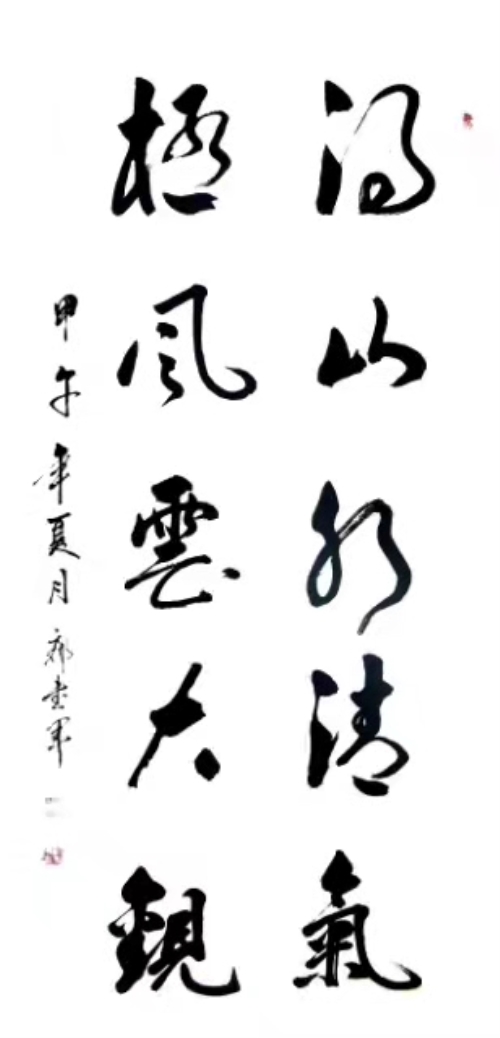 得山水清氣
極風雲大觀
甲午年夏月